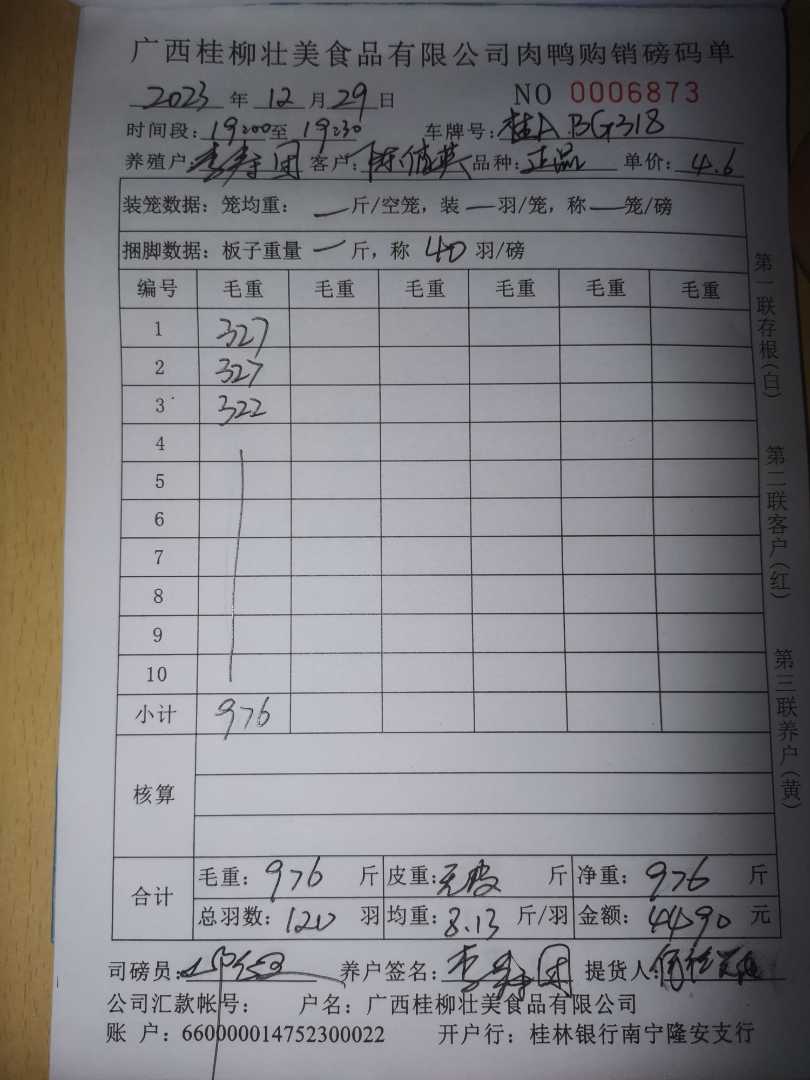 广西桂柳壮美食品有限公司肉鸭购销磅码单
2023 年 12 月 29 日 NO 0006873
时间段: 19:00 至 19:30 车牌号: 桂A BG318
养殖户: 李寿团 客户: 陈值英 品种: 正品 单价: 4.6
装笼数据: 笼均重: — 斤/空笼, 装 — 羽/笼, 称 — 笼/磅
捆脚数据: 板子重量 — 斤, 称 40 羽/磅
编号 毛重 毛重 毛重 毛重 毛重 毛重
1 327
2 327
3 322
4
5
6
7
8
9
10
小计 976
核算
合计 毛重: 976 斤 皮重: 无皮 斤 净重: 976 斤
总羽数: 120 羽 均重: 8.13 斤/羽 金额: 4490 元
司磅员: 养户签名: 李寿团 提货人:
公司汇款帐号: 户名: 广西桂柳壮美食品有限公司
账 户: 660000014752300022 开户行: 桂林银行南宁隆安支行
第一联存根(白)
第二联客户(红)
第三联养户(黄)